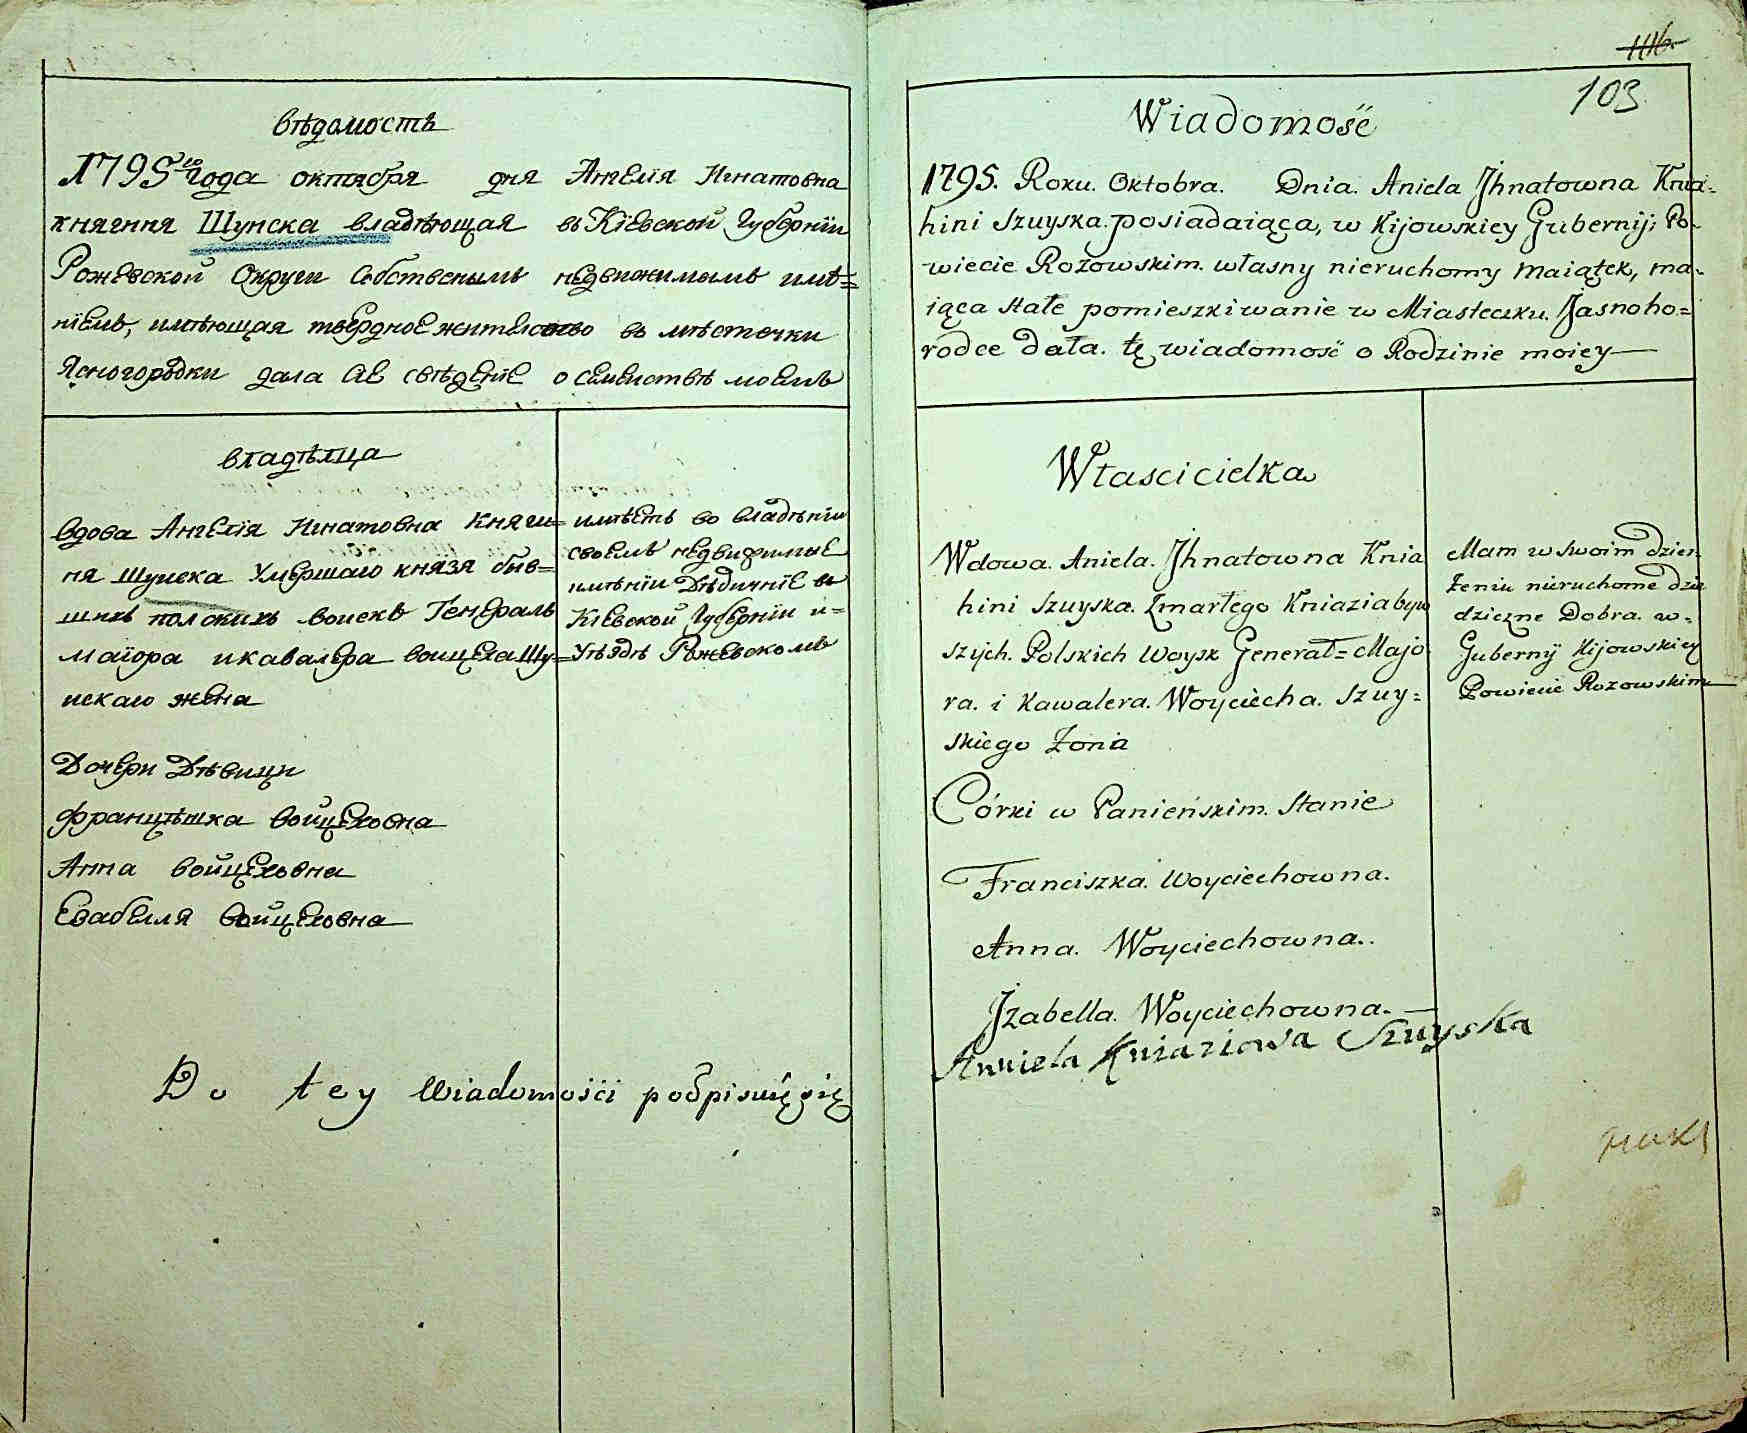 вѣдомость
1795го года октября дня Ангелія Игнатовна
княгиня Шуйска владѣющая въ Кіевской Губерніи
Рожевской Округи собственымъ недвижимымъ имѣ=
ніемъ, имѣющая твердное жителство въ мѣстечки
Ясногородки дала сіе свѣденіе о семействѣ моемъ
владѣлца
вдова Ангелія Игнатовна Княги=
ня шуйска Умершаго князя быв=
шихъ полскихъ войскъ Генералъ
маіора икавалера войцеха Шу=
йскаго жена
Дочери Дѣвици
францѣшка войцеховна
Анна войцеховна
Езабелля войцеховна
имѣетъ во владѣніи
своемъ недвижимые
имѣніи Дѣдичніе въ
Кіевской Губерніи и=
Уѣздѣ Рожевскомъ
Do tey Wiadomości podpisuię się
116.
103
Wiadomość
1795. Roku. Oktobra. Dnia. Aniela Jhnatowna Knia=
hini Szuyska. posiadaiąca, w Kijowskiey Gubernij, Po=
wiecie Rozowskim. własny nieruchomy maiątek, ma=
iąca stałe pomieszkiwanie w Miasteczku. Jasnoho=
rodce dała. tę wiadomość o Rodzinie moiey
Włascicielka
Wdowa. Aniela. Jhnatowna Knia
hini Szuyska. Zmarłego Kniazia byw
szych. Polskich Woysk Generał=Majo
ra. i Kawalera. Woyciecha. Szuy=
skiego Żona
Córki w Panieńskim. Stanie
Franciszka. Woyciechowna.
Anna. Woyciechowna..
Jzabella. Woyciechowna.
Anniela Kniaziowa Szuyska
Mam w swoim dzier
żeniu nieruchome dzie
dziczne Dobra. w=
Guberny Kijowskiey
Powiecie Rozowskim